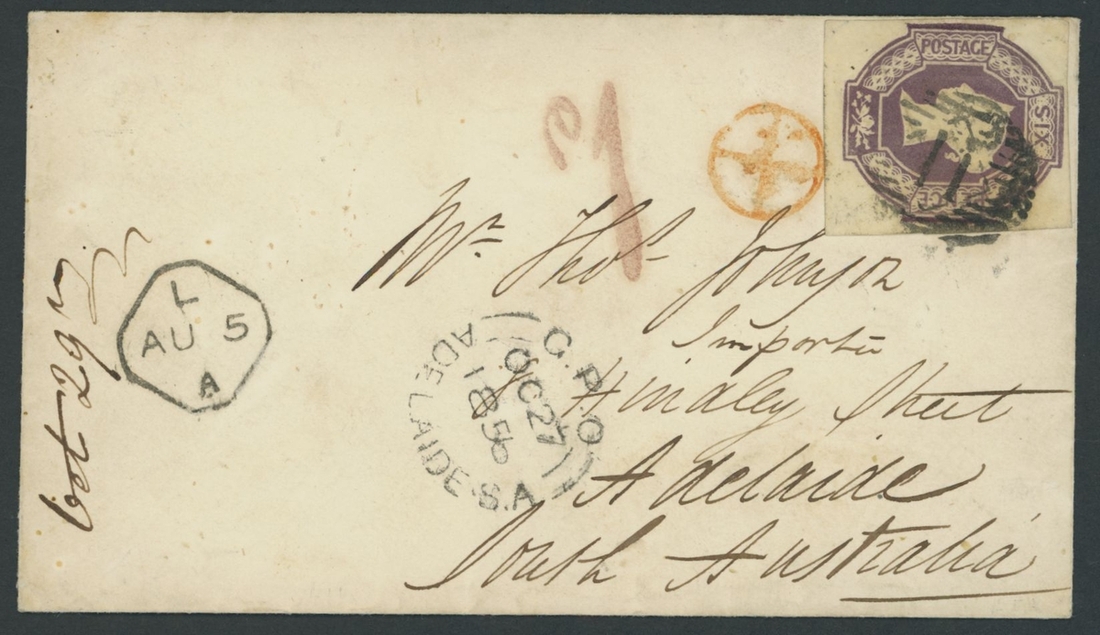 POSTAGE
SIX
PENCE
11
1
Mr. Thos Johnson
Importer
Hindley Street
Adelaide
South Australia
L
AU 5
A
G.P.O.
OC 27
1856
ADELAIDE.S.A
Oct 29